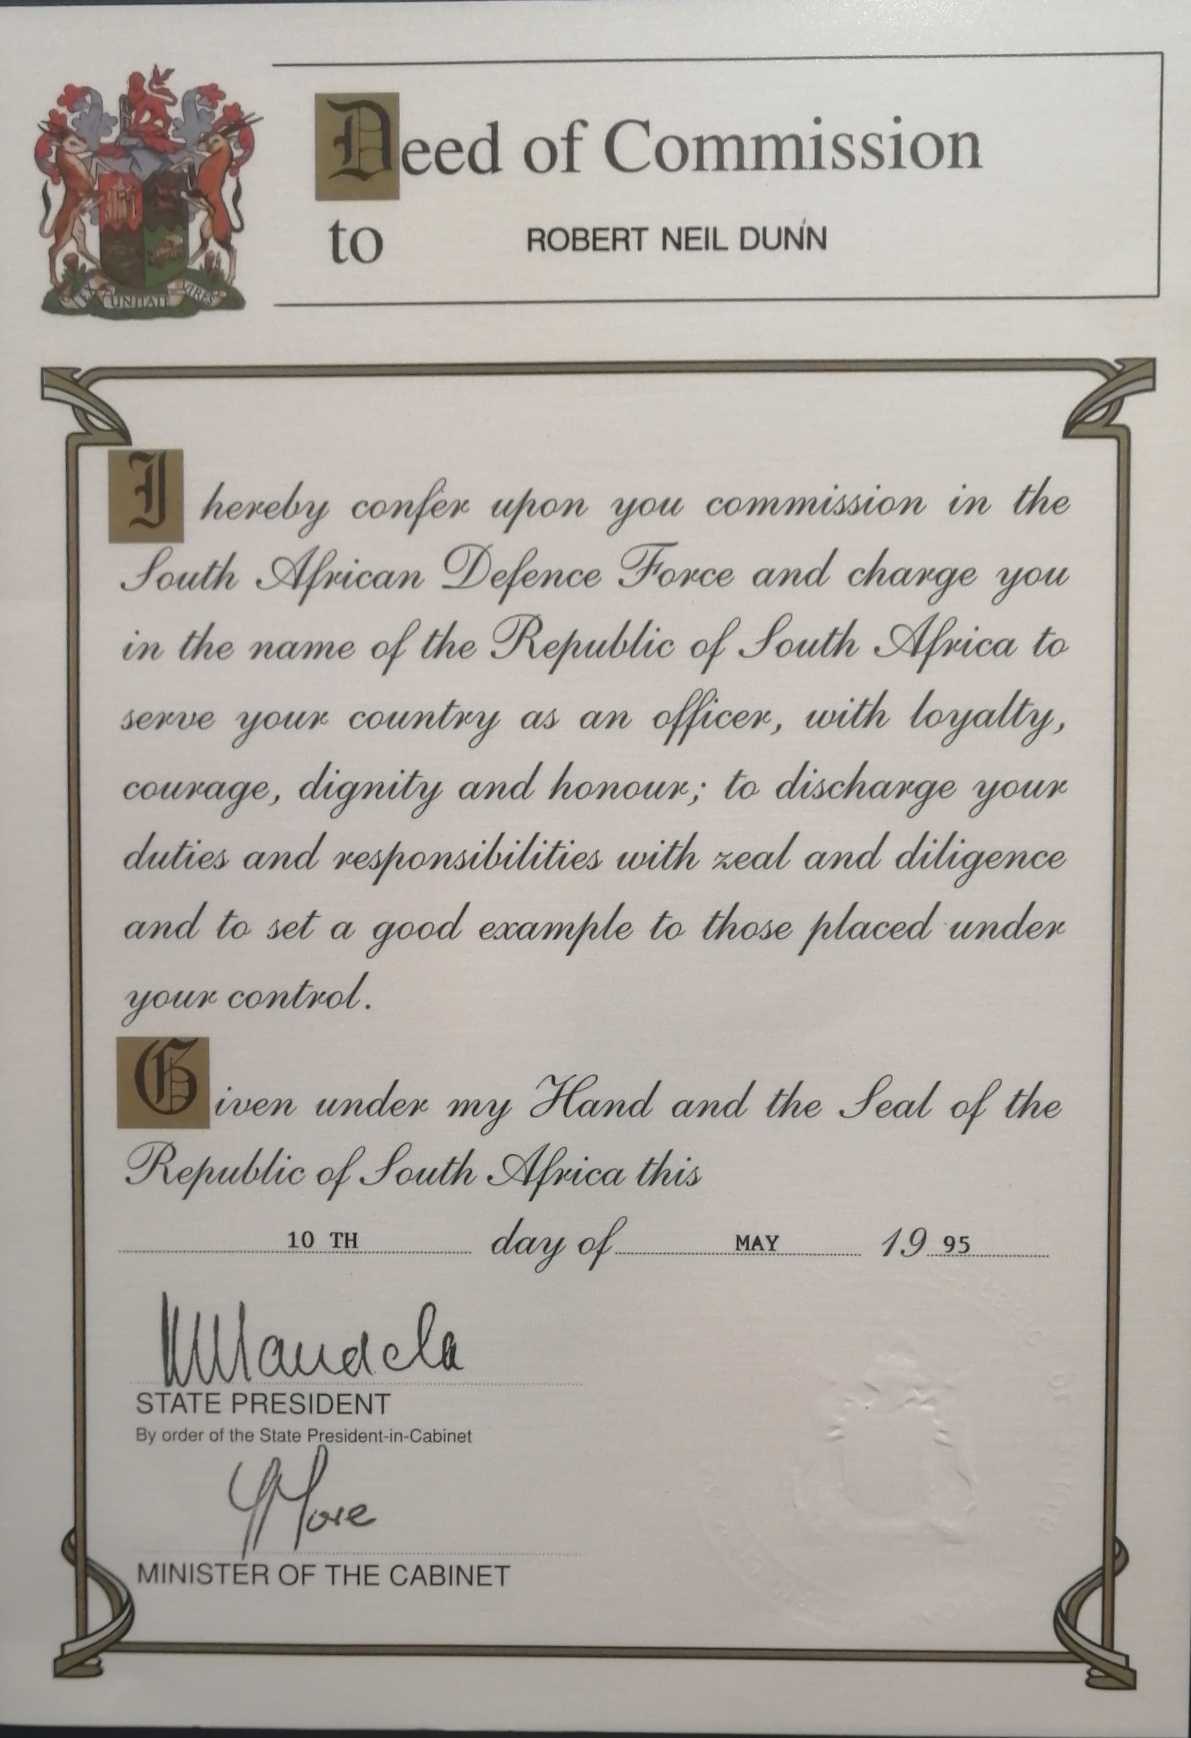 Deed of Commission
to ROBERT NEIL DUNN
EX UNITATE VIRES
I hereby confer upon you commission in the
South African Defence Force and charge you
in the name of the Republic of South Africa to
serve your country as an officer, with loyalty,
courage, dignity and honour; to discharge your
duties and responsibilities with zeal and diligence
and to set a good example to those placed under
your control.
Given under my Hand and the Seal of the
Republic of South Africa this
10 TH day of MAY 19 95
NMandela
STATE PRESIDENT
By order of the State President-in-Cabinet
MINISTER OF THE CABINET